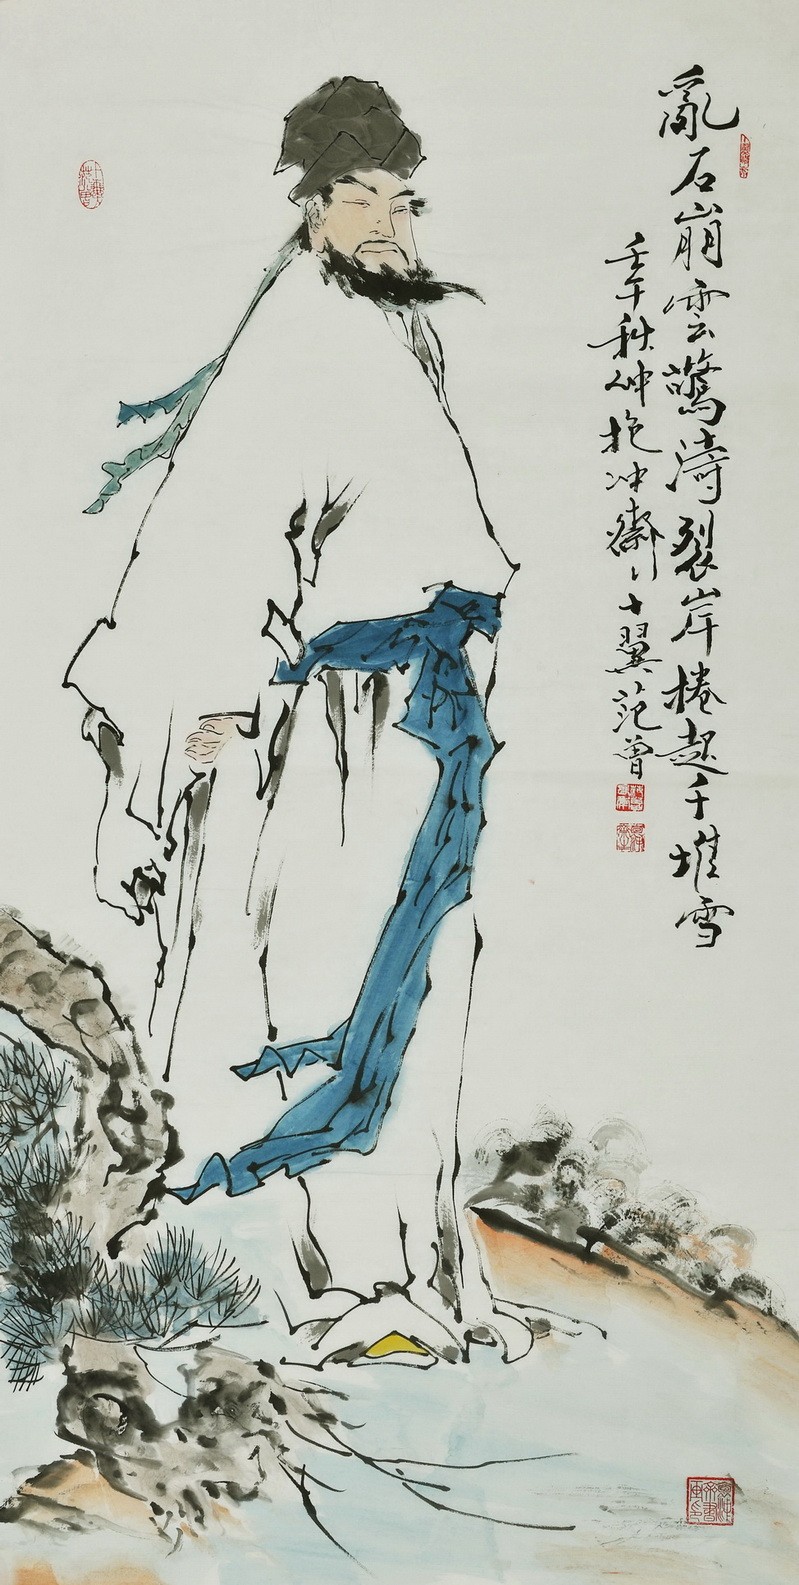 亂石崩雲驚濤裂岸捲起千堆雪
壬午秋仲抱冲齋十翼范曾